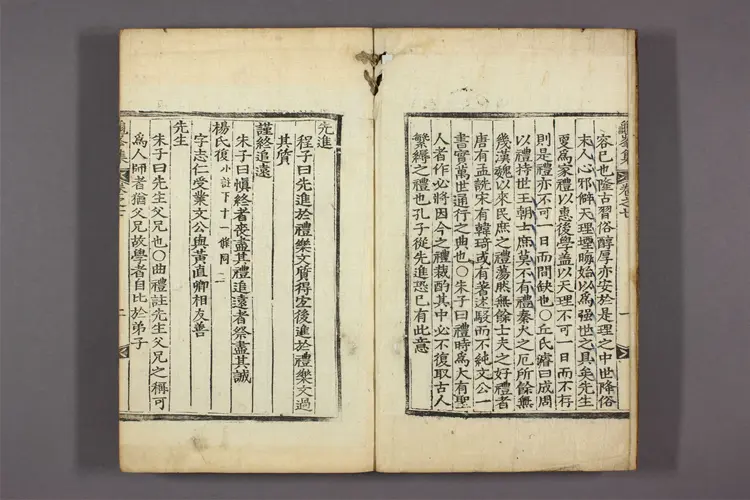 龜峯集 卷之七 一
容已也隆古習俗醇厚亦安於是理之中世降俗
末人心邪僻天理堙晦始以爲强世之具矣先生
夏爲家禮以惠後學盖以天理不可一日而不存
則是禮亦不可一日而間缺也○丘氏濬曰成周
以禮持世王朝士庶莫不有禮秦火之厄所餘無
幾漢魏以來民庶之禮蕩然無餘士夫之好禮者
唐有孟詵宋有韓琦或有著述駁而不純文公一
書實萬世通行之典也○朱子曰禮時爲大有聖
人者作必將因今之禮裁酌其中必不復取古人
繁縟之禮也孔子從先進恐已有此意
先進
程子曰先進於禮樂文質得宜後進於禮樂文過
其質
謹終追遠
朱子曰愼終者喪盡其禮追遠者祭盡其誠
楊氏復 小註下十一條同 二
字志仁受業文公與黃直卿相友善
先生
朱子曰先生父兄也○曲禮註先生父兄之稱可
爲人師者猶父兄故學者自比於弟子
龜峯集 卷之七